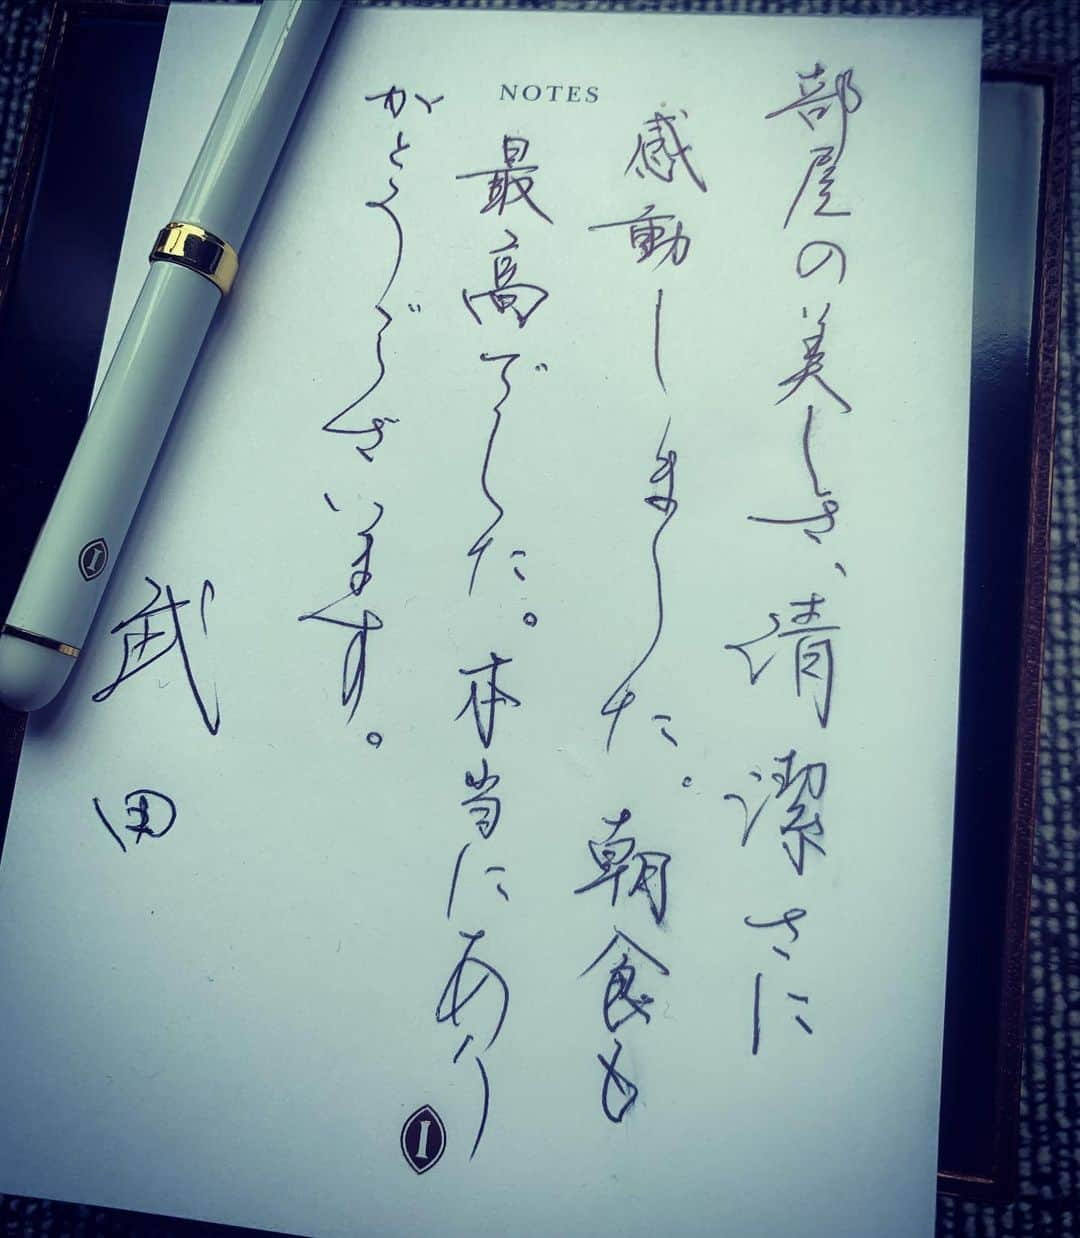 NOTES
部屋の美しさ、清潔さに
感動しました。朝食も
最高でした。本当にあり
がとうございます。
武田
I
I